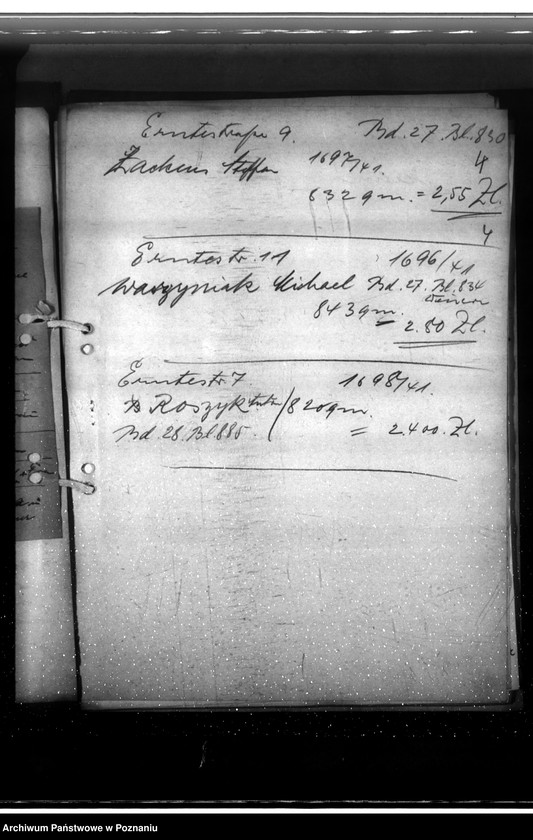 Erntestraße 9. Bd. 27. Bl. 830
Steffan 1697/41. 4
832 qm. = 2,55 Zl.
4
Erntestr. 11 1696/41
Wawrzyniak Michael Bd. 27. Bl. 834
843 qm.
= 2.80 Zl.
Erntestr 7 1698/41.
Roszyk / 820 qm.
Bd. 28. Bl. 885. = 2.400. Zl.
Archiwum Państwowe w Poznaniu